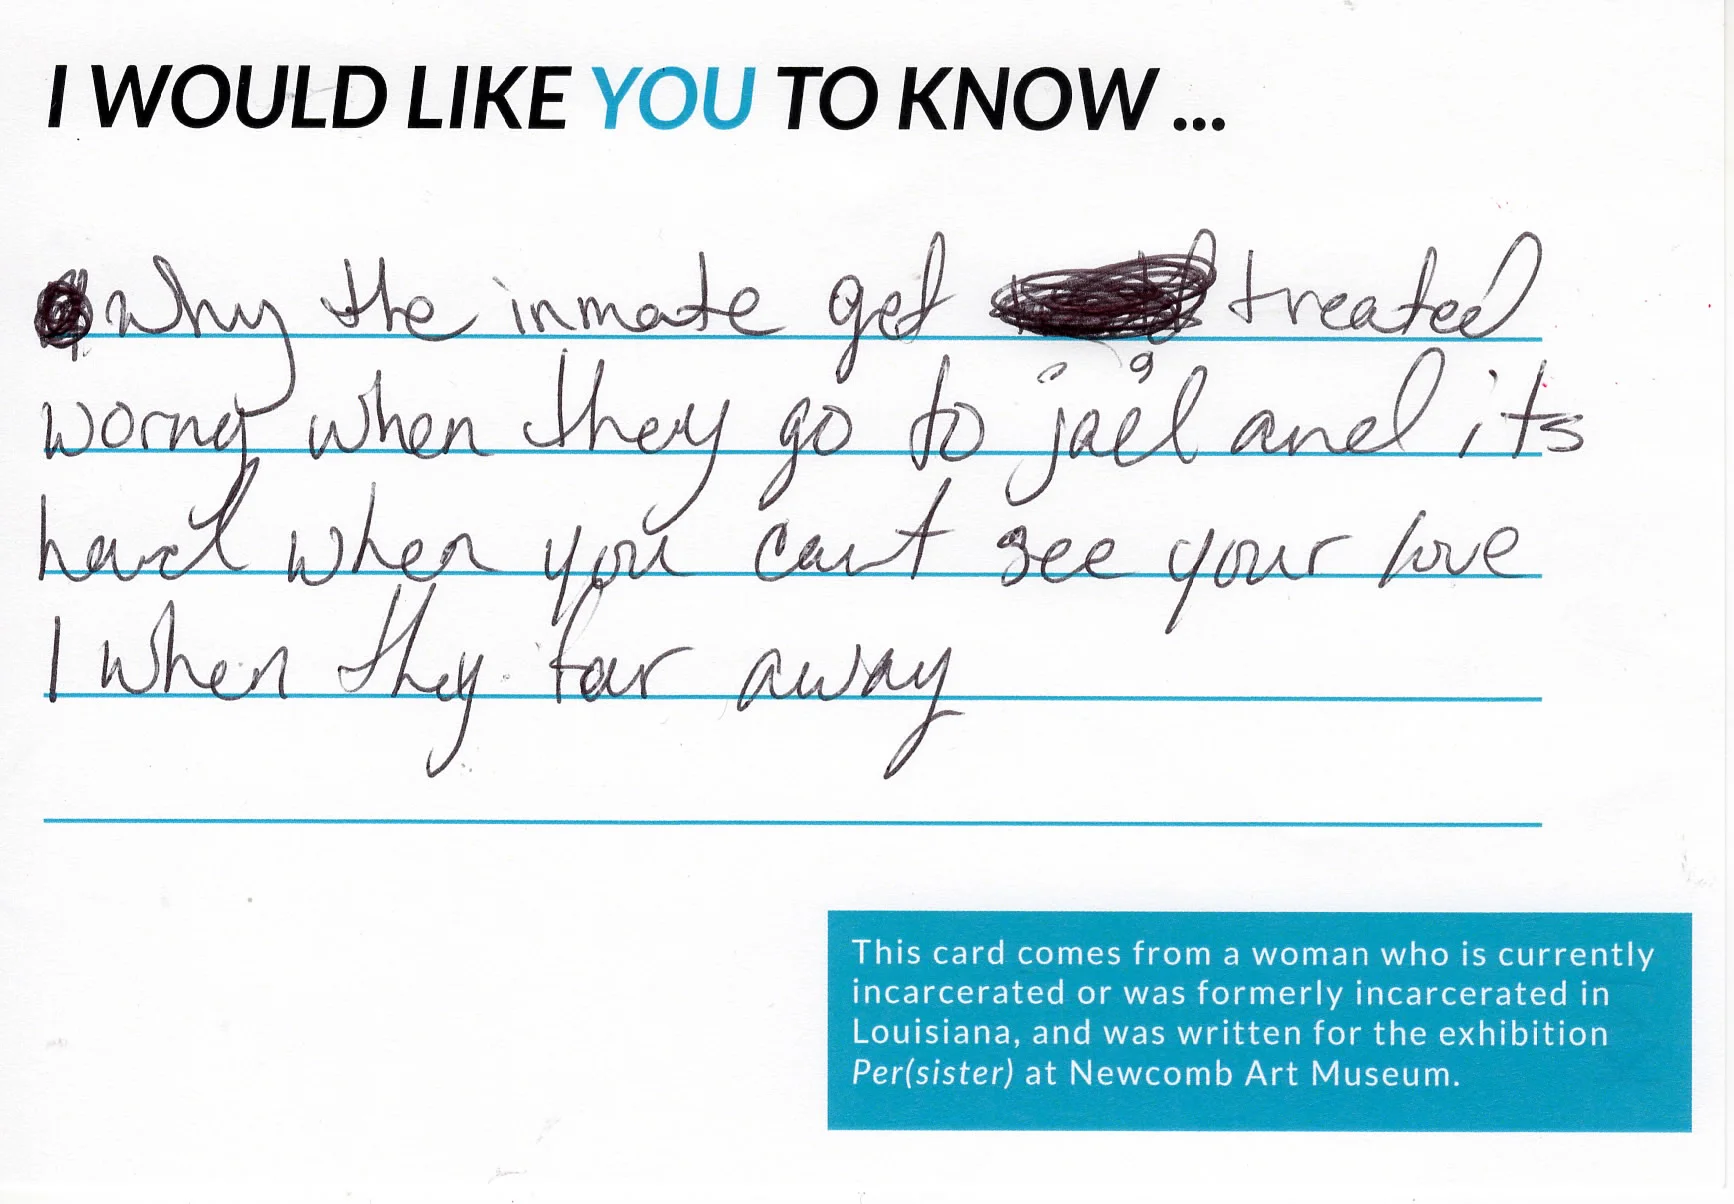 I WOULD LIKE YOU TO KNOW ...
Why the inmate get treated
worng when they go to jail and its
hard when you can't see your love
1 when they far away
This card comes from a woman who is currently
incarcerated or was formerly incarcerated in
Louisiana, and was written for the exhibition
Per(sister) at Newcomb Art Museum.